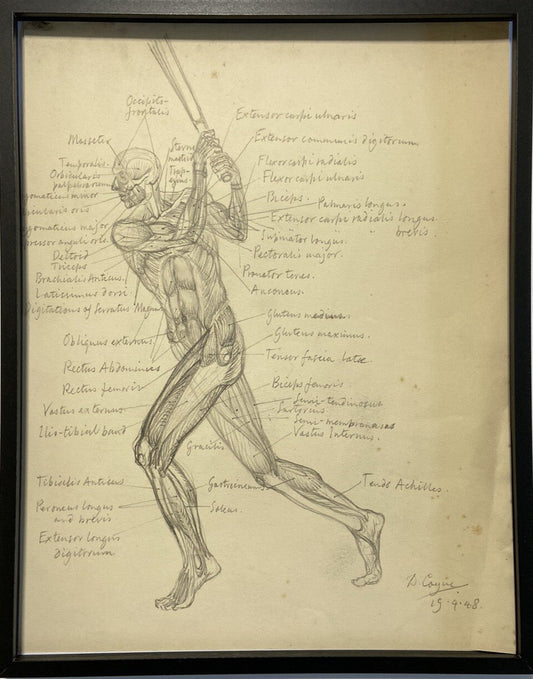 Occipito-
frontalis
Masseter
Temporalis.
Orbicularis
palpebrarum
zygomaticus minor
bicularis oris
zygomaticus major
pressor anguli oris.
Deltoid
Triceps
Brachialis Anticus.
Latissimus dorsi
Digitations of Serratus Magnus
Obliquus externus.
Rectus Abdominus
Rectus femoris
Vastus externus
Ilio-tibial band
Gracilis
Tibialis Anticus.
Peroneus longus
and brevis
Extensor longus
Digitorum
Sterno
mastoid
Trap-
ezius.
Extensor carpi ulnaris
Extensor communis digitorum
Flexor carpi radialis
Flexor carpi ulnaris
Biceps. Palmaris longus.
Extensor carpi radialis longus
" brevis.
Supinator longus.
Pectoralis major.
Pronator teres.
Anconeus.
Gluteus medius
Gluteus maximus.
Tensor fascia latae
Biceps femoris
Semi-tendinosus
Sartorius
Semi-membranosus
Vastus Internus.
Gastrocnemius
Soleus.
Tendo Achilles.
19.4.48.